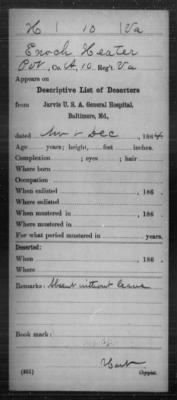 H | 10 | Va
Enoch Heater
Pvt, Co. A, 10 Reg't Va
Appears on
Descriptive List of Deserters
from Jarvis U. S. A. General Hospital,
Baltimore, Md.,
dated Nov & Dec, 1864
Age years; height, feet inches.
Complexion ; eyes ; hair
Where born
Occupation
When enlisted , 186 .
Where enlisted
When mustered in , 186 .
Where mustered in
For what period mustered in years.
Deserted:
When , 186 .
Where
Remarks: Absent without leave
Book mark:
(831) Copyist.